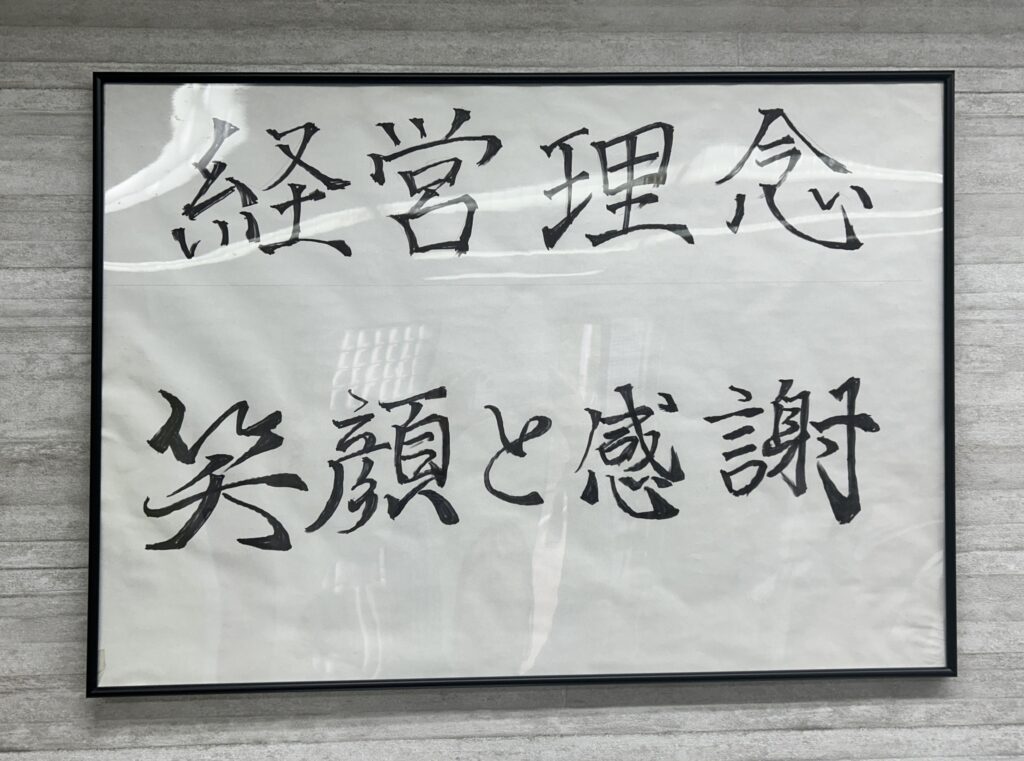 経営理念
笑顔と感謝